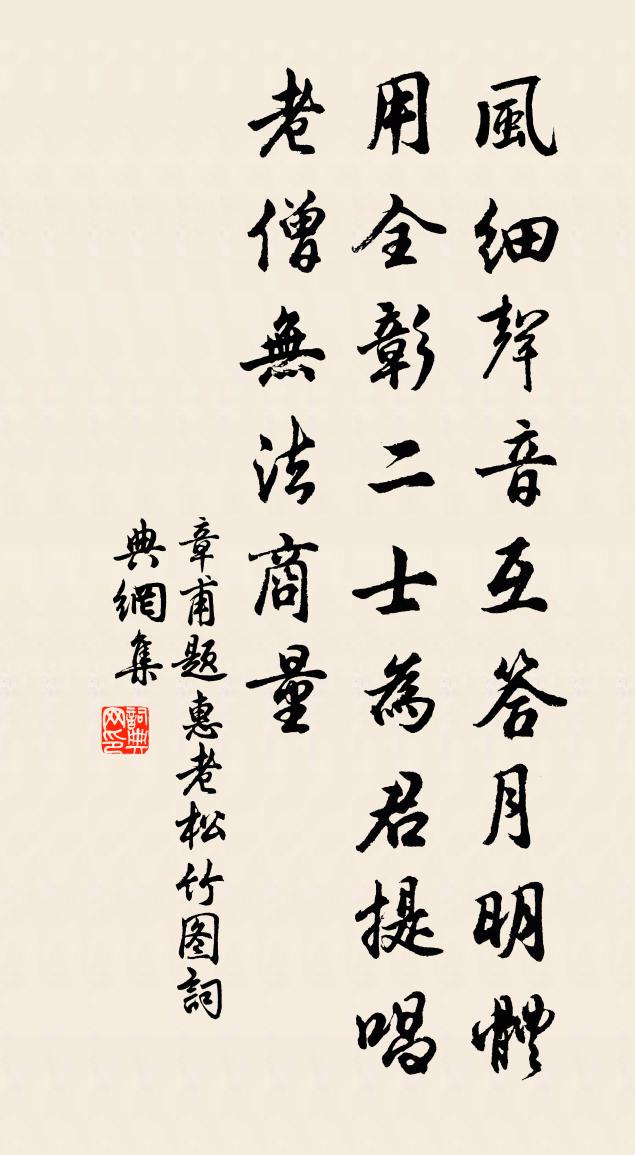 風細聲音互答月明體
用全彰二士為君提唱
老僧無法商量
章甫題惠老松竹图詞
典網集
詞典网印